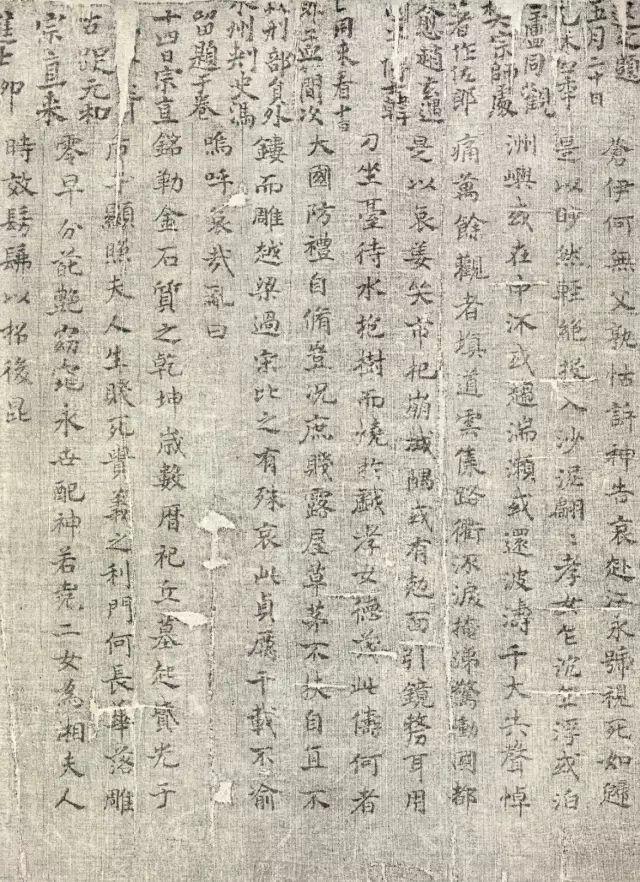 題
五月二十日
盧同觀
樊宗師處
著作佐郎
愈趙玄遇
韓
同來看十
簡次
刑部員外
州刺史馮
留題于卷
十四日宗直
元和
宗直來
進士
蒼伊何無父孰怙訴神告哀赴江永號視死如歸
是以眇然輕絕投入沙泥翩〻孝女乍沉乍浮或泊
洲嶼或在中流或趨湍瀨或還波濤千夫共聲悼
痛萬餘觀者填道雲集路衢泣淚掩涕驚動國都
是以哀姜哭市杞崩城隅或有剋面引鏡剺耳用
刀坐臺待水抱樹而燒於戲孝女德茂此儔何者
大國防禮自脩豈況庶賤露屋草茅不扶自直不
鏤而雕越梁過宋比之有殊哀此貞厲千載不渝
嗚呼哀哉亂曰
銘勒金石質之乾坤歲數曆祀丘墓起墳光于
后土顯照夫人生賤死貴義之利門何長華落雕
零早分葩艷窈窕永世配神若堯二女為湘夫人
時效髣髴以招後昆